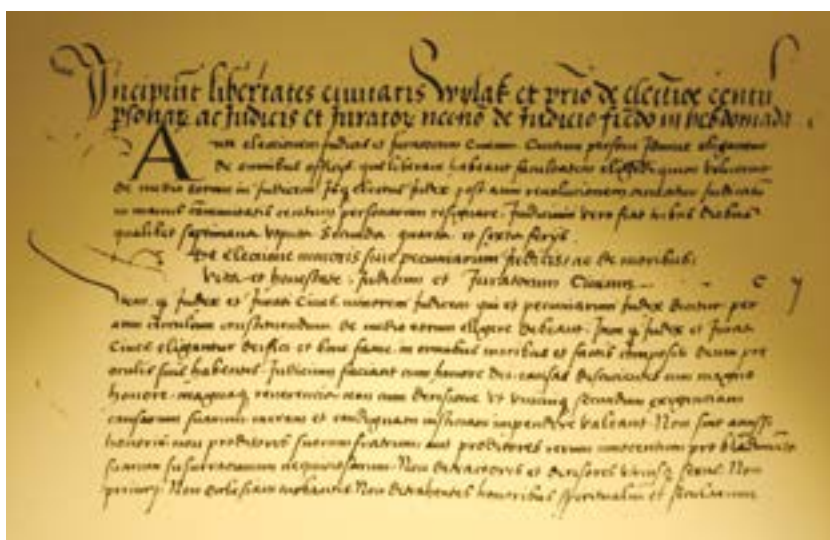 Incipiunt libertates civitatis Wylak et prio de electioe centu
psonar ac Judicis et Jurator necno de Judicio fiedo in hebdomada
Ante electionem Judicis et Juratorum Civium Centum persone Idonee eligantur
de omnibus officijs qui liberam habeant facultatem eligendi quos voluerint
de medio eorum in Judicem Ita electus Judex post anni revolucionem Judicatum
in manus comunitatis centum personarum resignare Judicium vero fiat tribus diebus
qualibet septimana Videlicet Secunda quarta et sexta ferijs
De electione minoris sive pecuniarum Judicis ac de moribus
Vita et honestate Judicum et Juratorum Civium
Item q Judex et Jurati Cives minorem Judicem qui et pecuniarum Judex dicitur per
anni circulum constituendum de medio eorum eligere debeant Item q Judex et Jurati
Cives eligantur deifici et bone fame in omnibus moribus et factis compositi deum pre
oculis suis habentes Judicium faciant cum honore dei causas discucientes cum magno
honore magnaq reverencia non cum derisione Ut unicuiq secundum exigenciam
causarum suarum meram et condignam iusticiam impendere valeant Non sint
Non proditores suorum fratrum aut proditores rerum innocentum pro
Non detractores et derisores utriusq sexus Non
Non Ecclesiam Non detrahentes honoribus spiritualium et secularium